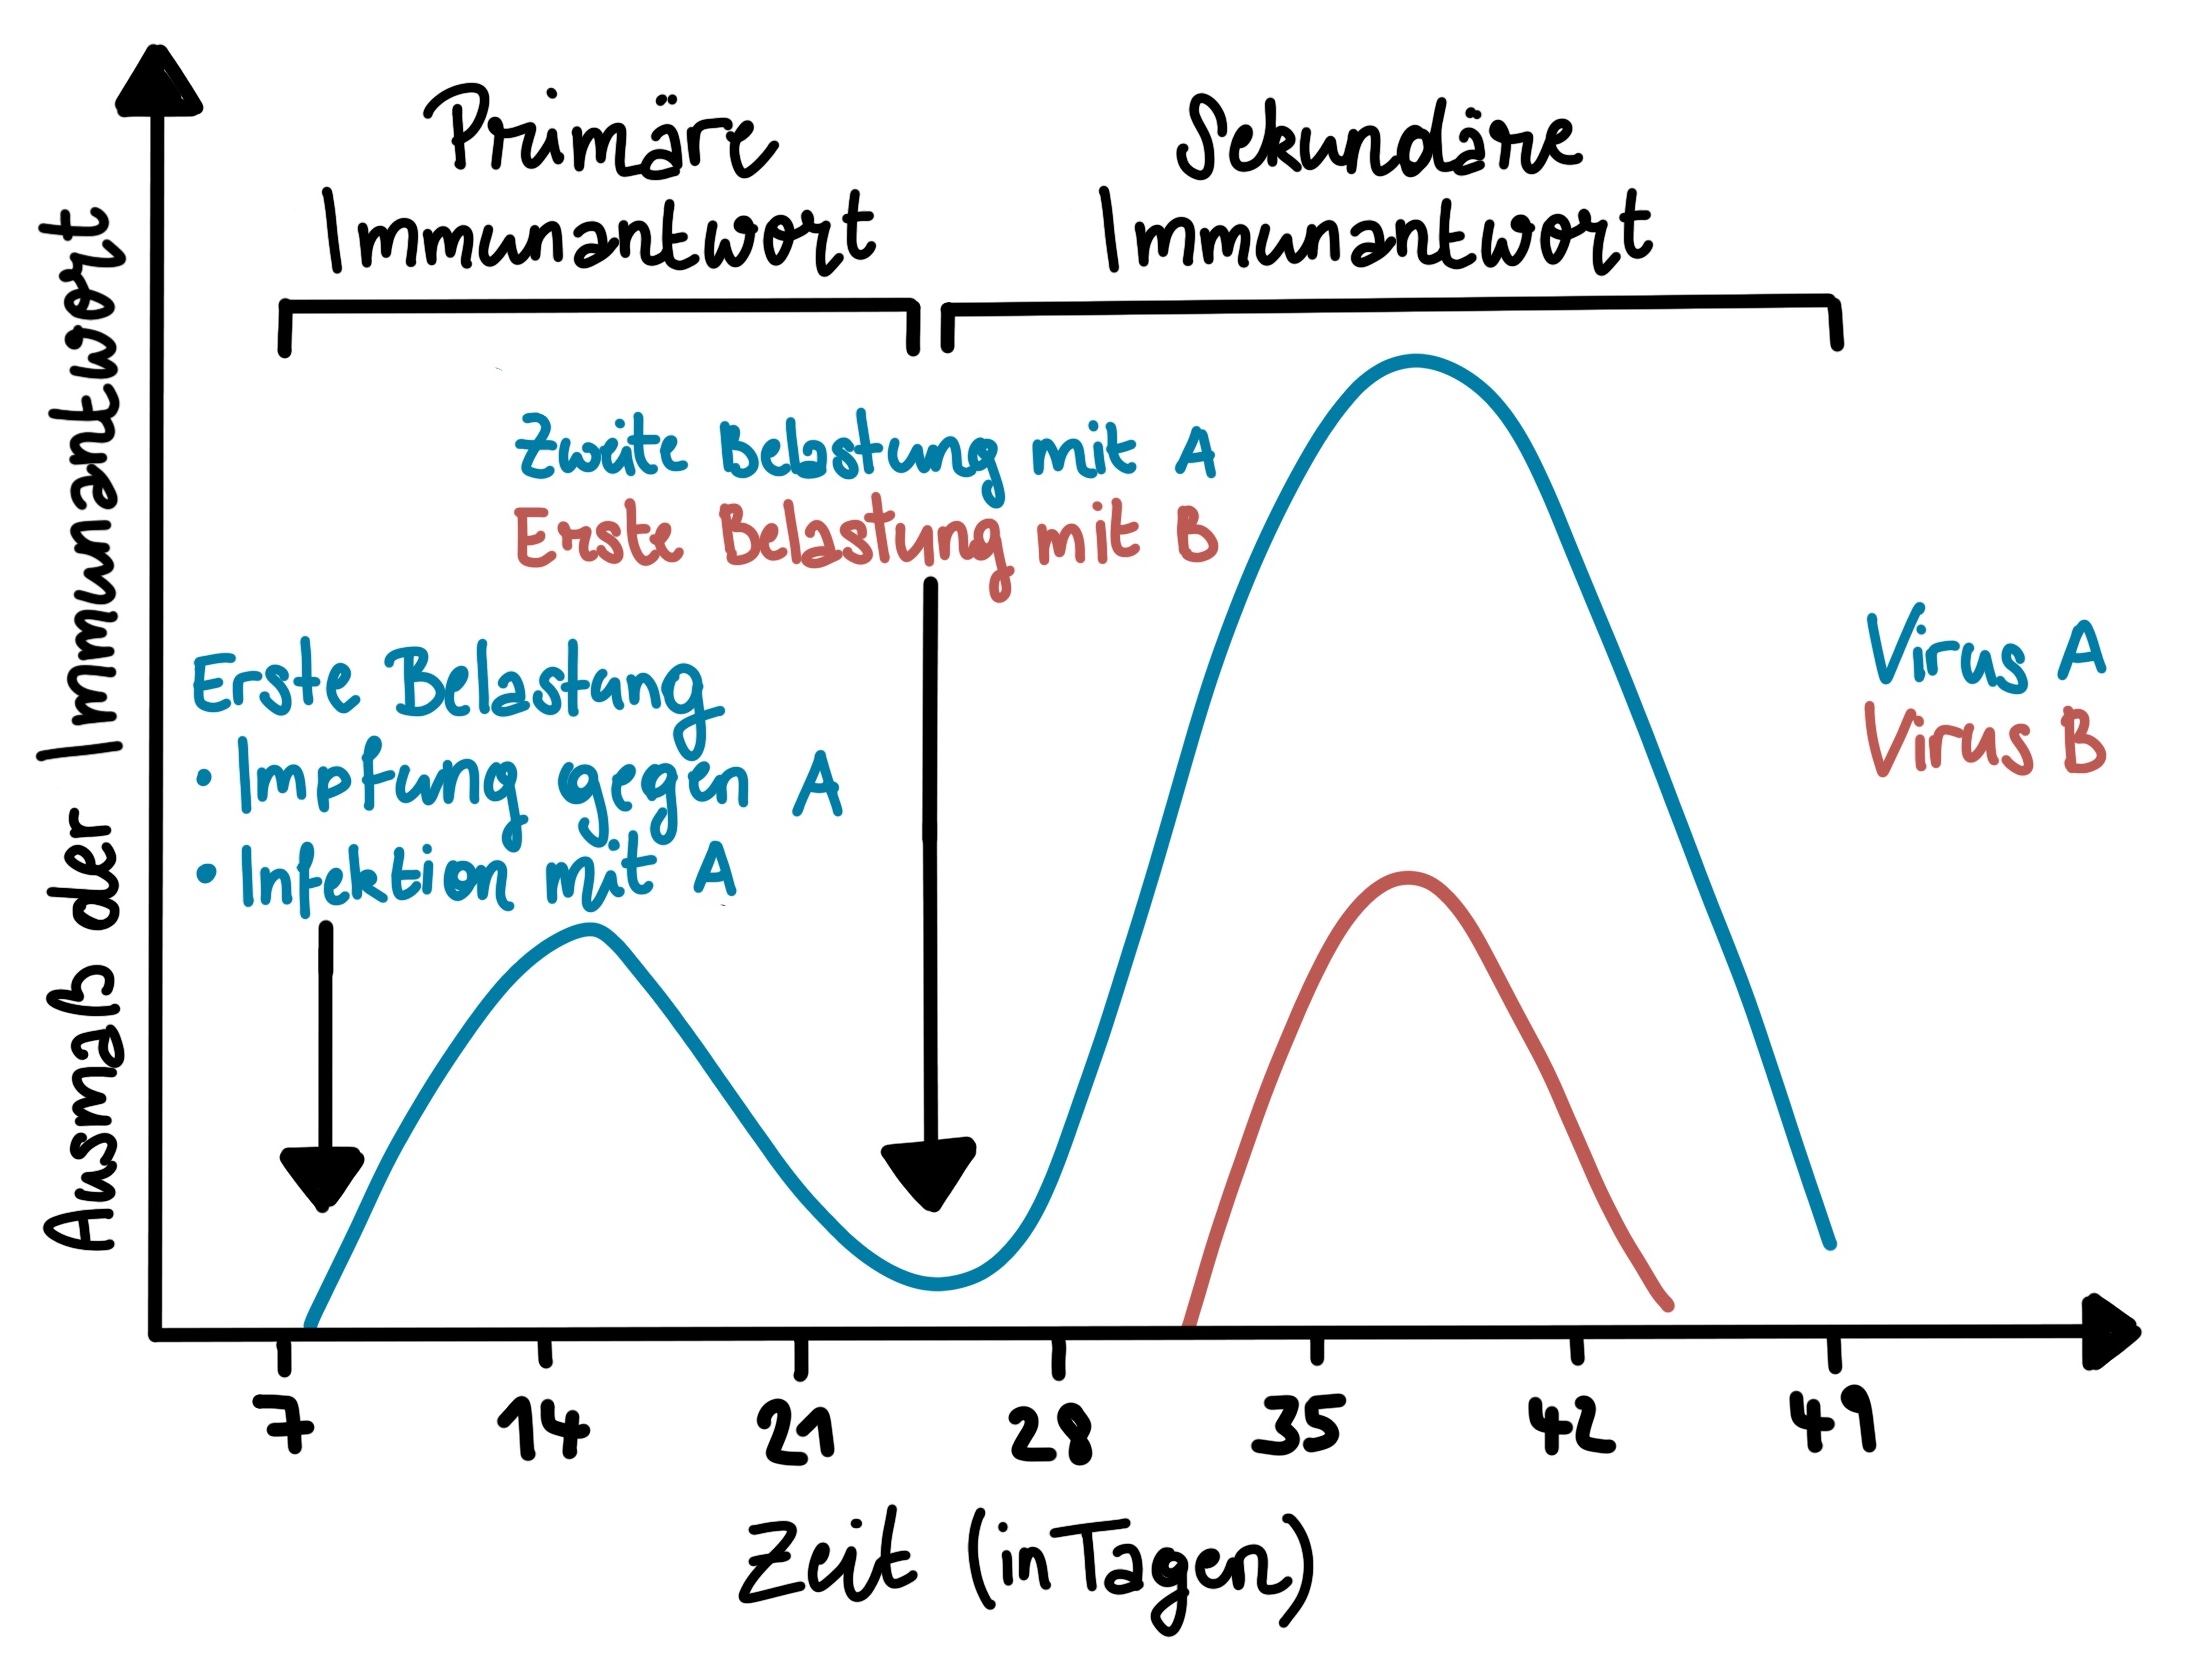 Primäre
Immunantwort
Sekundäre
Immunantwort
Ausmaß der Immunantwort
Zweite Belastung mit A
Erste Belastung mit B
Erste Belastung
• Impfung gegen A
• Infektion mit A
Virus A
Virus B
7 14 21 28 35 42 49
Zeit (in Tagen)